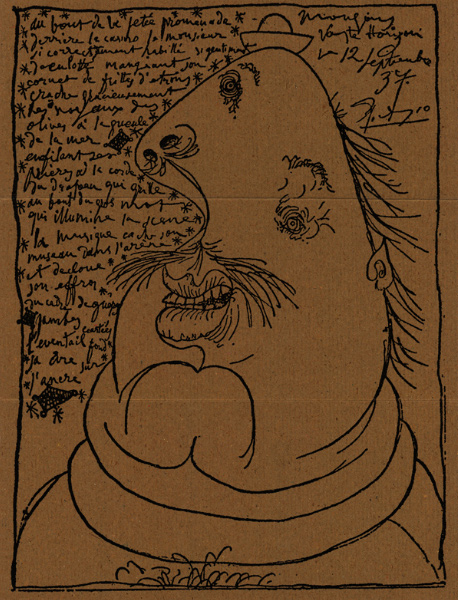 au bout de la jetée promenade
derrière le casino le monsieur
si correctement habillé si gentiment
déculotté mangeant son
cornet de frites d'étrons
crache gracieusement
les noyaux des
olives à la gueule
de la mer
enfilant ses
prières à la corde
du drapeau qui grille
au bout du gros mot
qui illumine la scène
la musique cache son
museau dans l'arène
et décloue
son effroi
du cadre de guêpes
jambes écartées
l'éventail fond
sa cire sur
l'ancre
Mougins
Vaste Horizon
le 12 septembre
37.
Picasso